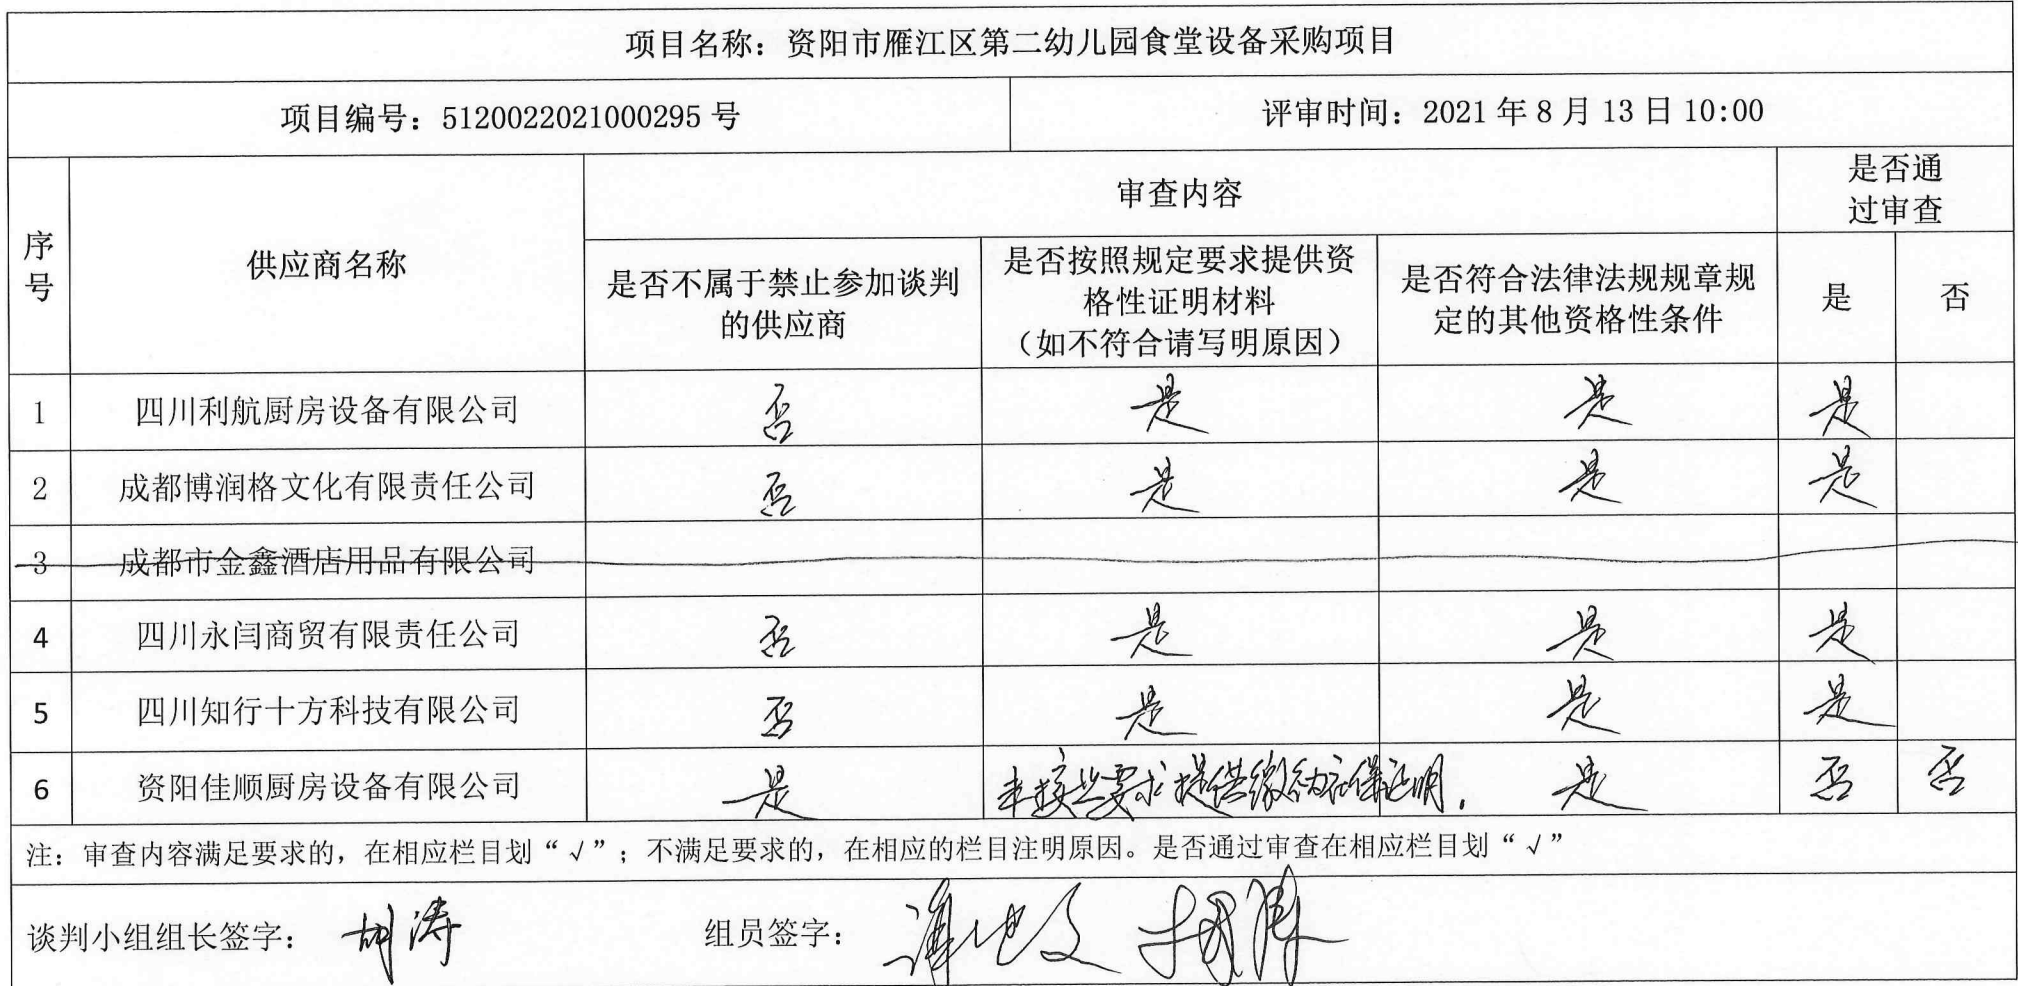 项目名称：资阳市雁江区第二幼儿园食堂设备采购项目
项目编号：5120022021000295 号
评审时间：2021 年 8 月 13 日 10:00
序号
供应商名称
审查内容
是否通
过审查
是否不属于禁止参加谈判
的供应商
是否按照规定要求提供资
格性证明材料
（如不符合请写明原因）
是否符合法律法规规章规
定的其他资格性条件
是
否
1 四川利航厨房设备有限公司 否 是 是 是
2 成都博润格文化有限责任公司 否 是 是 是
3 成都市金鑫酒店用品有限公司
4 四川永闫商贸有限责任公司 否 是 是 是
5 四川知行十方科技有限公司 否 是 是 是
6 资阳佳顺厨房设备有限公司 是 未按要求提供缴纳社保证明. 是 否 否
注：审查内容满足要求的，在相应栏目划“√”；不满足要求的，在相应的栏目注明原因。是否通过审查在相应栏目划“√”
谈判小组组长签字： 胡涛
组员签字：